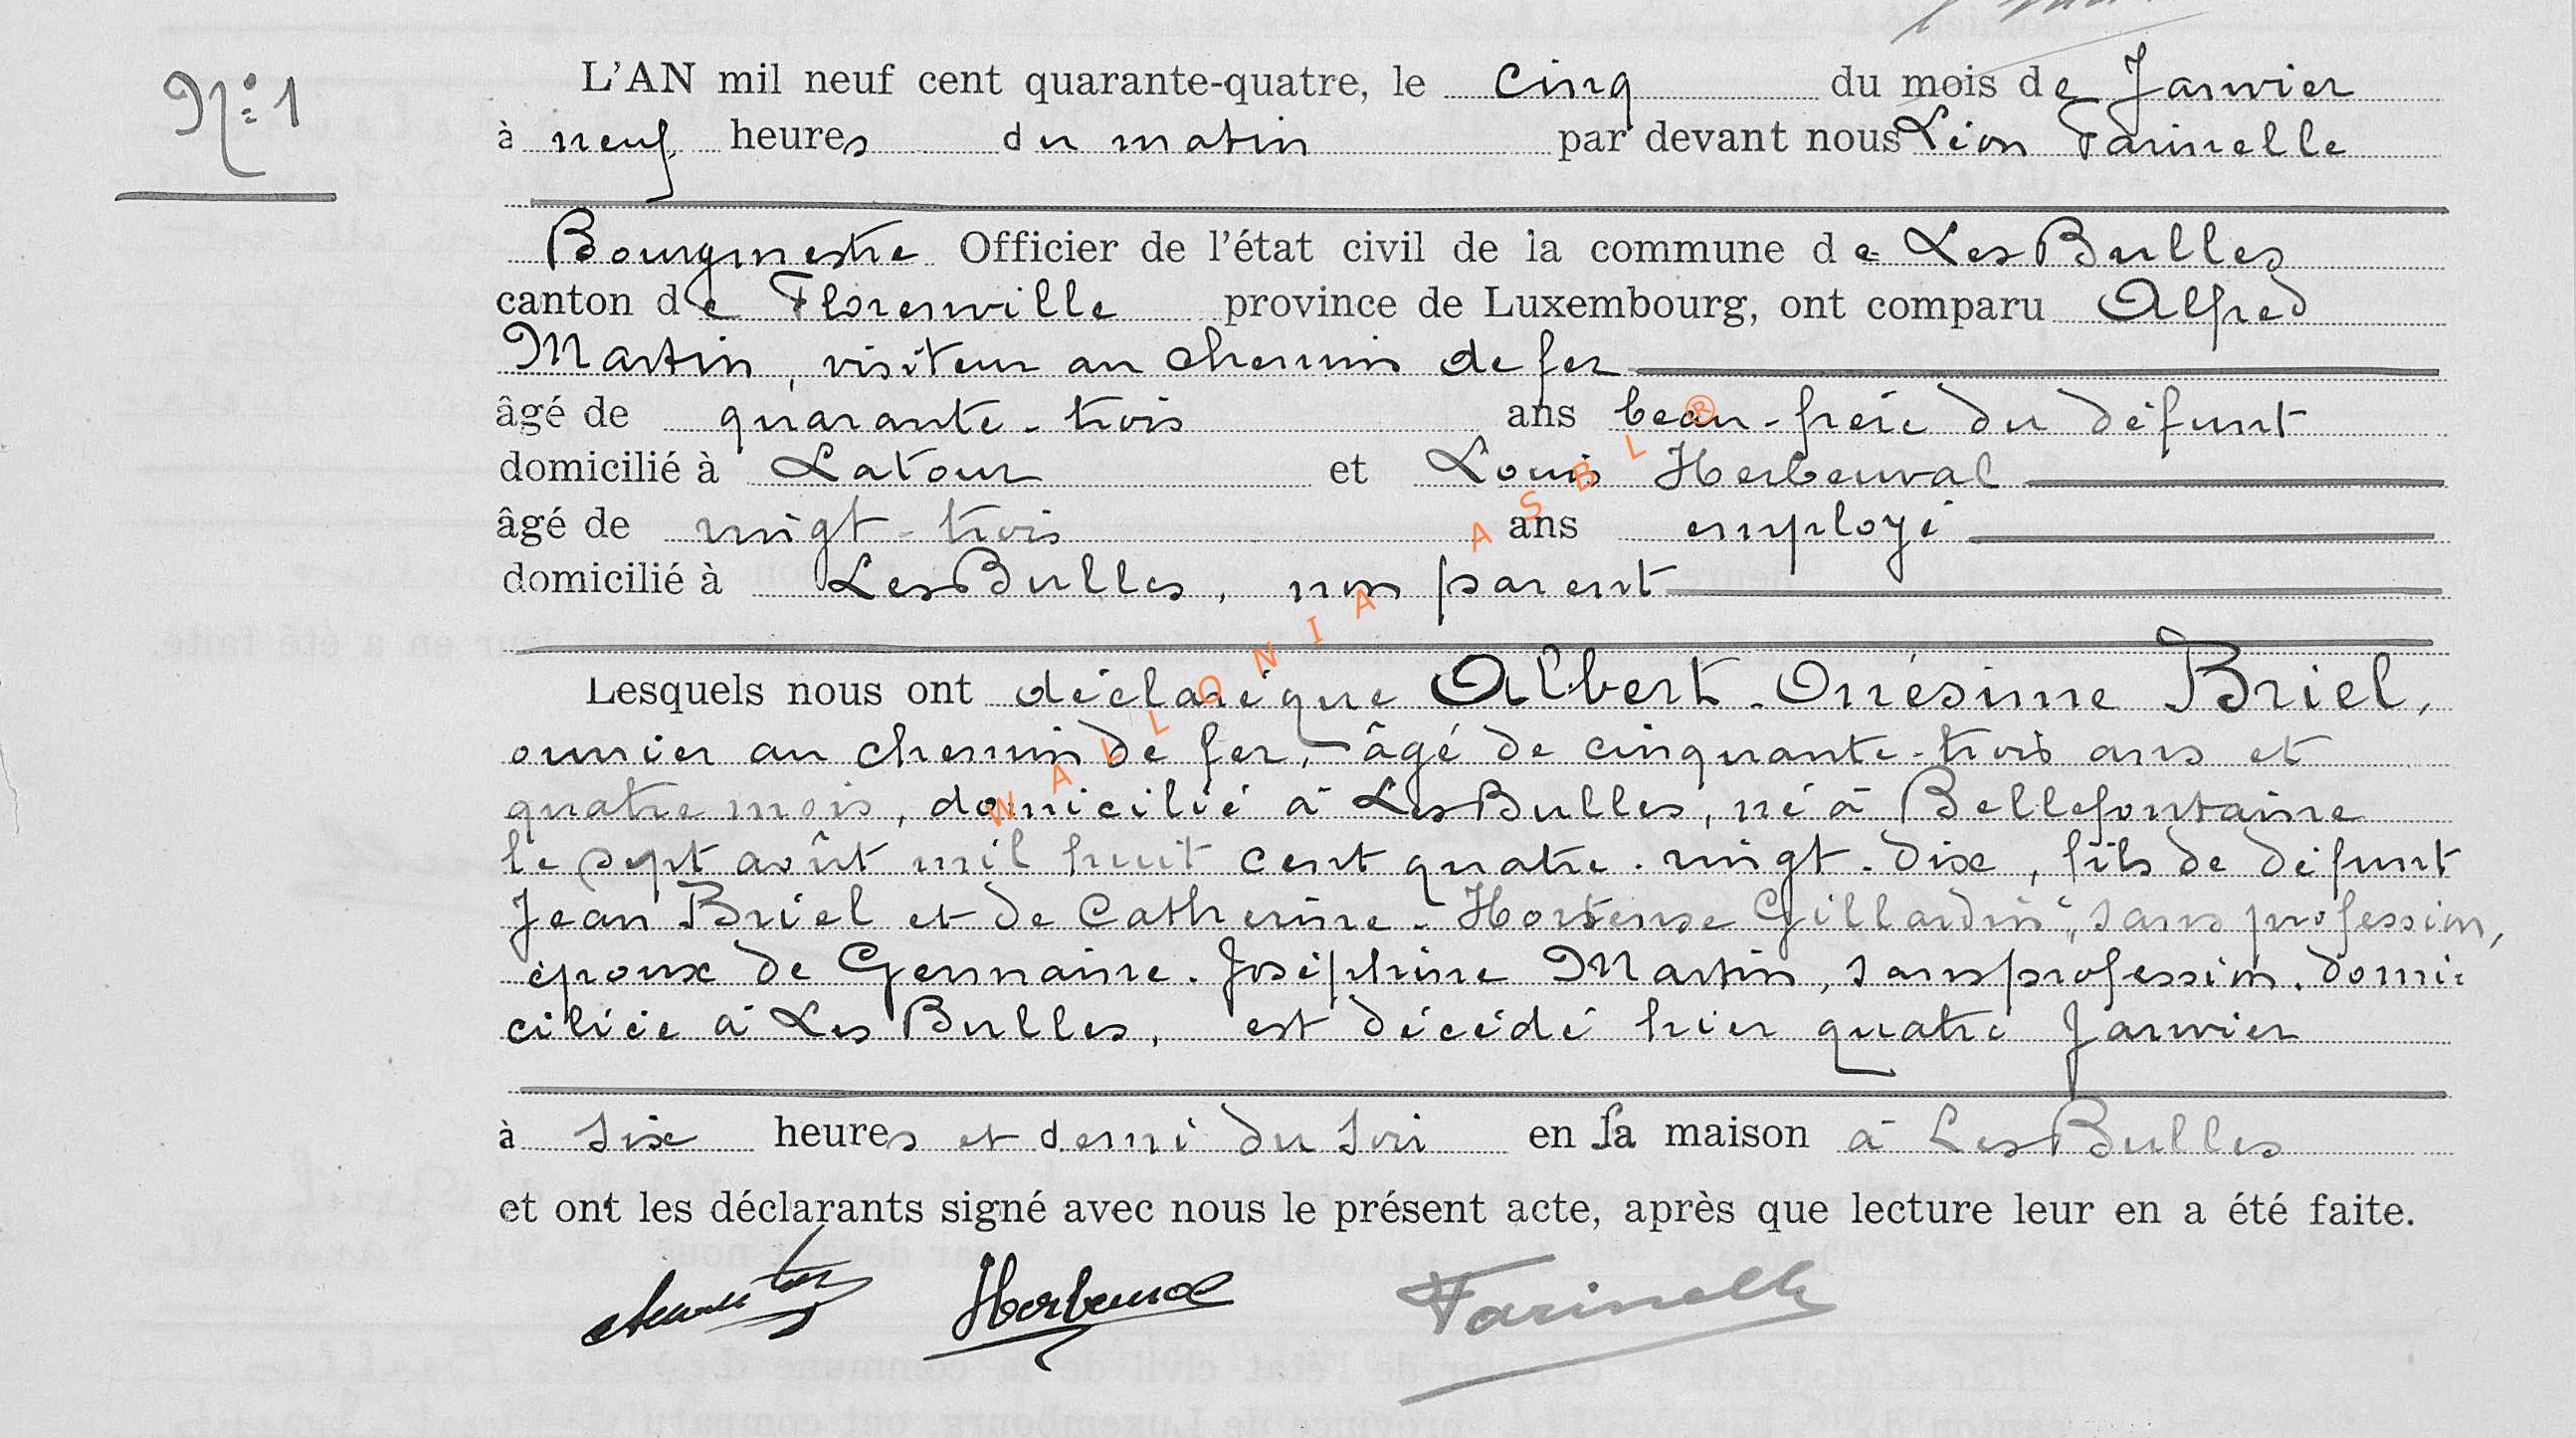 N° 1
L'AN mil neuf cent quarante-quatre, le cinq du mois de Janvier
à neuf heures du matin par devant nous Léon Farinelle
Bourgmestre Officier de l'état civil de la commune de Les Bulles
canton de Florenville province de Luxembourg, ont comparu Alfred
Martin, visiteur au chemin de fer
âgé de quarante-trois ans beau-frère du défunt
domicilié à Latour et Louis Herbeuval
âgé de vingt-trois ans employé
domicilié à Les Bulles, non parent
Lesquels nous ont déclaré que Albert-Onésime Briel,
ouvrier au chemin de fer, âgé de cinquante-trois ans et
quatre mois, domicilié à Les Bulles, né à Bellefontaine
le sept août mil huit cent quatre-vingt-dix, fils de défunt
Jean Briel et de Catherine-Hortense Gillardin, sans profession,
époux de Germaine-Joséphine Martin, sans profession, domi-
ciliée à Les Bulles, est décédé hier quatre Janvier
à six heures et demi du soir en sa maison à Les Bulles
et ont les déclarants signé avec nous le présent acte, après que lecture leur en a été faite.
Herbeuval Farinelle
WALLONIA ASBL ®